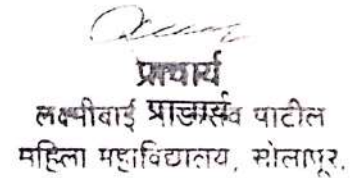 प्राचार्य
लक्ष्मीबाई पाटील
महिला महाविद्यालय, सोलापूर.